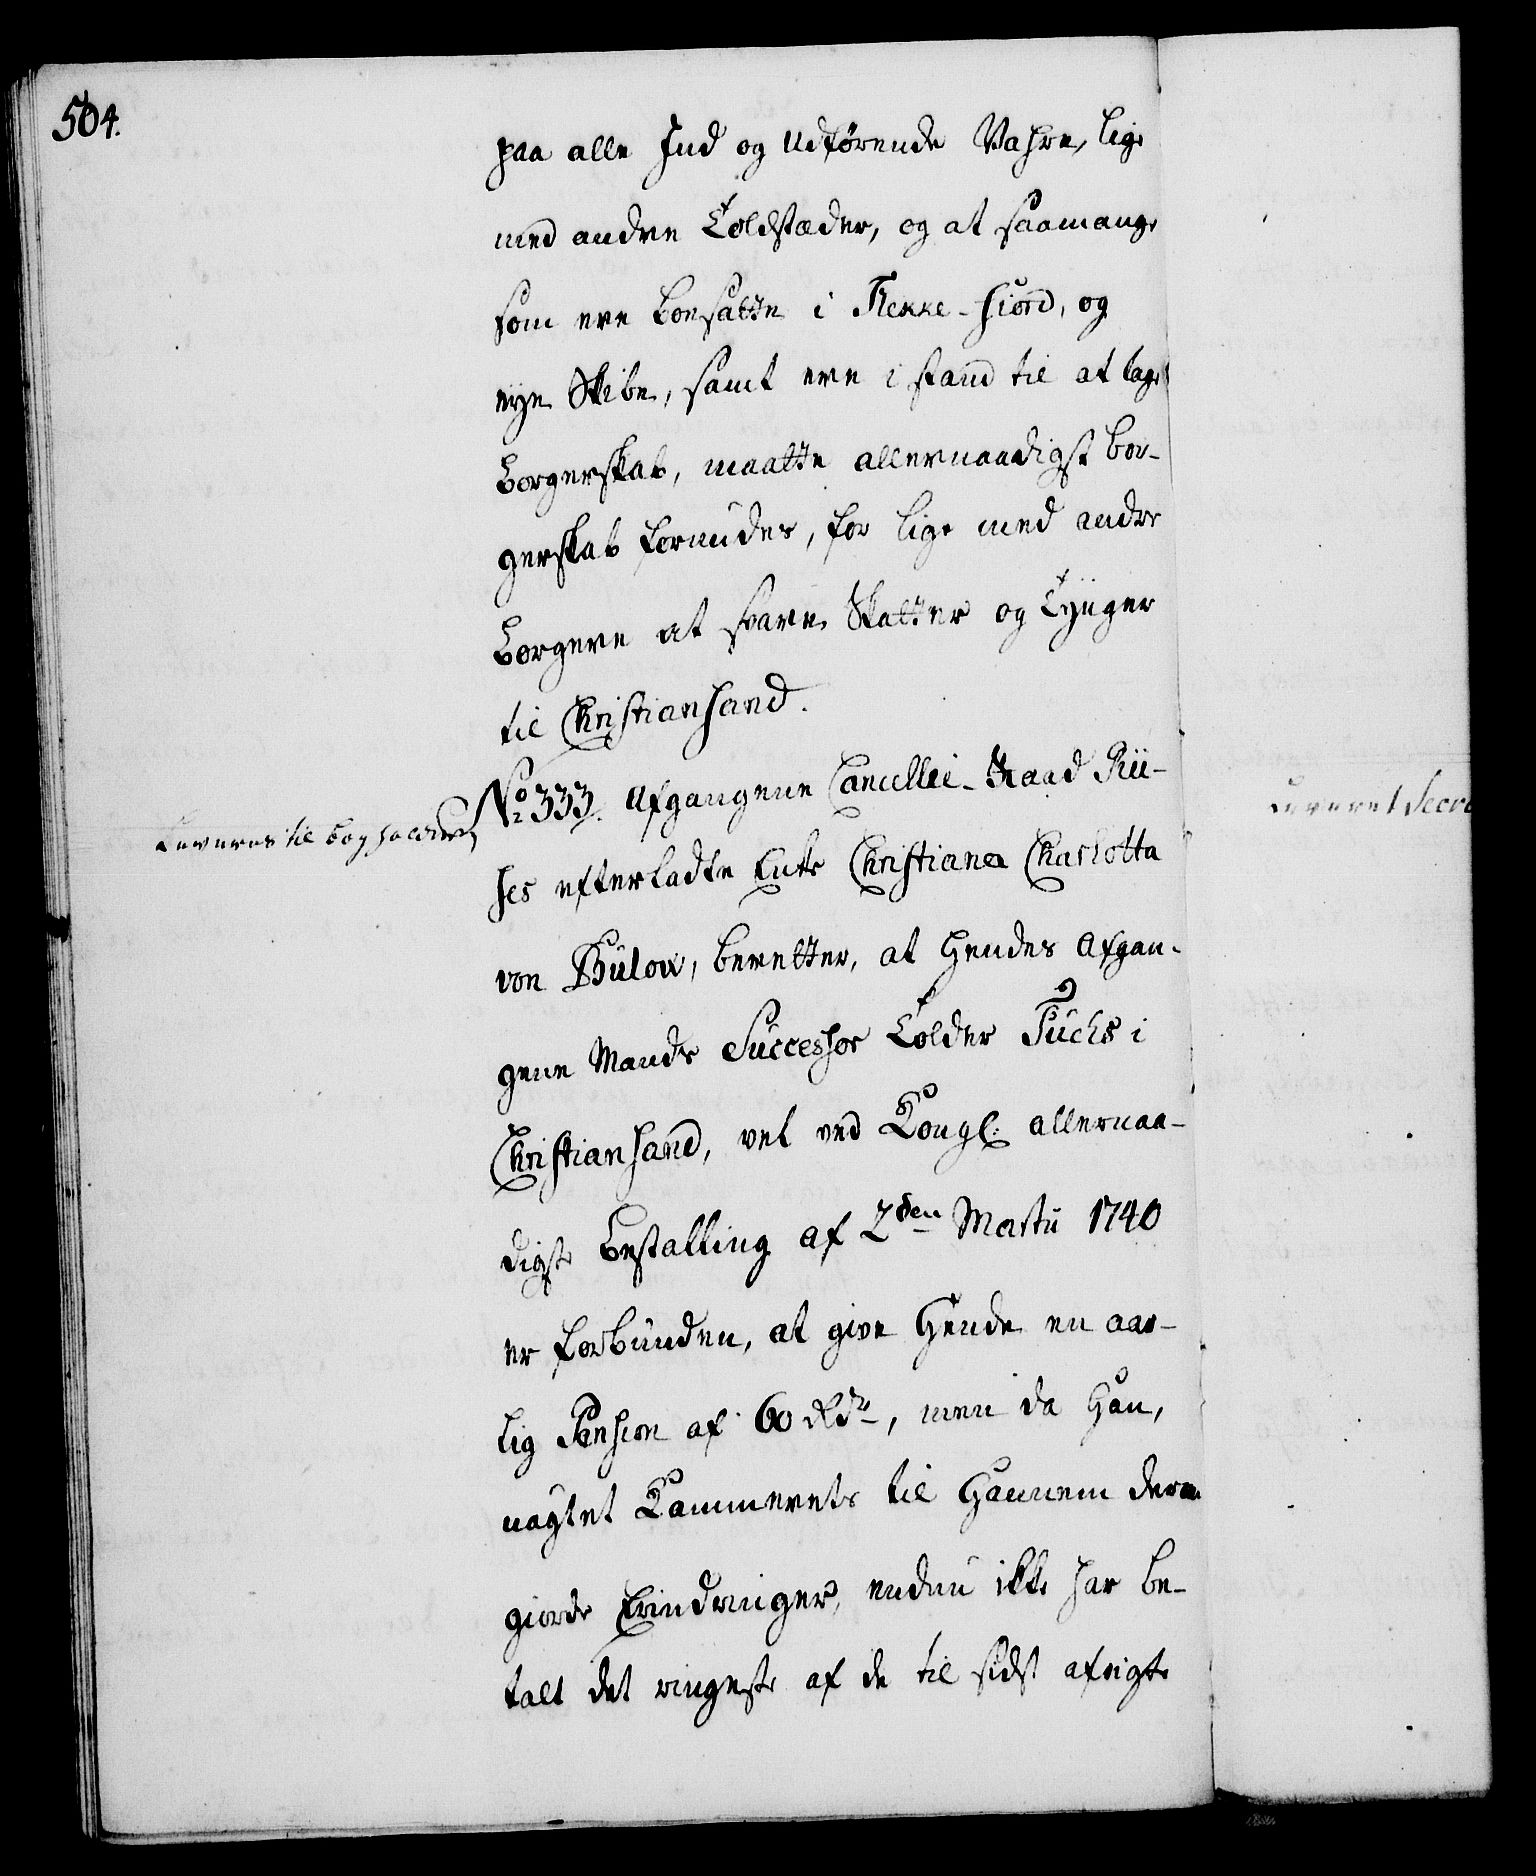 504.
paa alle Ind og Udførende Vahre, lige
med andre Toldstæder, og at saamange
som ere boesatte i Flekke-fiord, og
eye Skibe, samt ere i stand til at tage
Borgerskab, maatte allernaadigst bor-
gerskab formudes, for lige med andre
Borgere at svare Skatter og Tynger
til Christiansand.
No 333. Afgangene Cancellie-Raad Rii-
Leveres til bogholderen
ses efterladte Enke Christiana Charlotta
von Bülow, beretter, at Hendes Afgan-
gene Mands Successor Tolder Fuchs i
Christiansand, vel ved Kongl: allernaa-
digste Bestalling af 2den Martii 1740
er forbunden, at give Hende en aar-
lig Pension af 60 Rdr, men da Han,
uagtet Kammerets til Hannem derom
giorde Erindringer, endnu ikke har be-
talt det ringeste af de til sidst afvigte
Leveret Secre